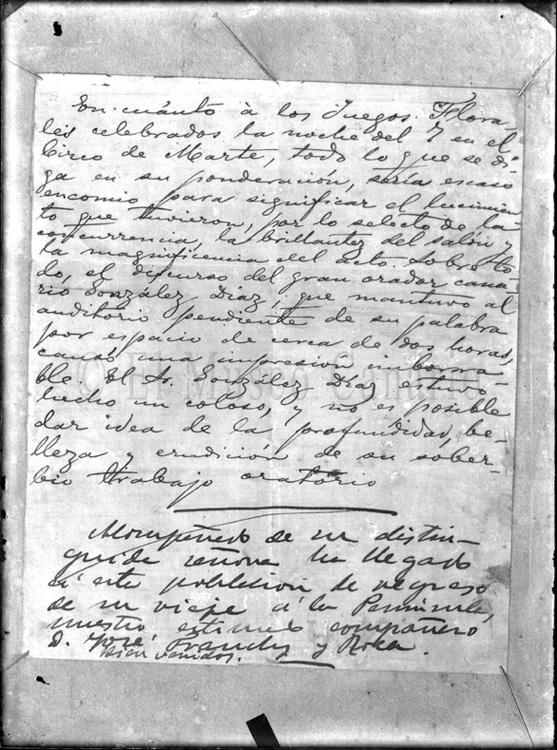 En cuánto à los Juegos Flora-
les celebrados la noche del 7 en el
Circo de Marte, todo lo que se di-
ga en su ponderación, sería escaso
encomio para significar el lucimien
to que tuvieron, por lo selecto de la
concurrencia, la brillantez del salón y
la magnificencia del acto. Sobre to-
do, el discurso del gran orador cana-
rio González Díaz, que mantuvo al
auditorio pendiente de su palabra
por espacio de cerca de dos horas,
causó una impresión imborra-
ble. El Sr. González Díaz estuvo
hecho un coloso, y no es posible
dar idea de la profundidad, be-
lleza y erudición de su sober-
bio trabajo oratorio
Acompañado de su distin-
guida señora ha llegado
á esta población de regreso
de su viaje á la Península,
nuestro estimado compañero
D. José Franchy y Roca.
Bien venidos.
© El Museo Canario